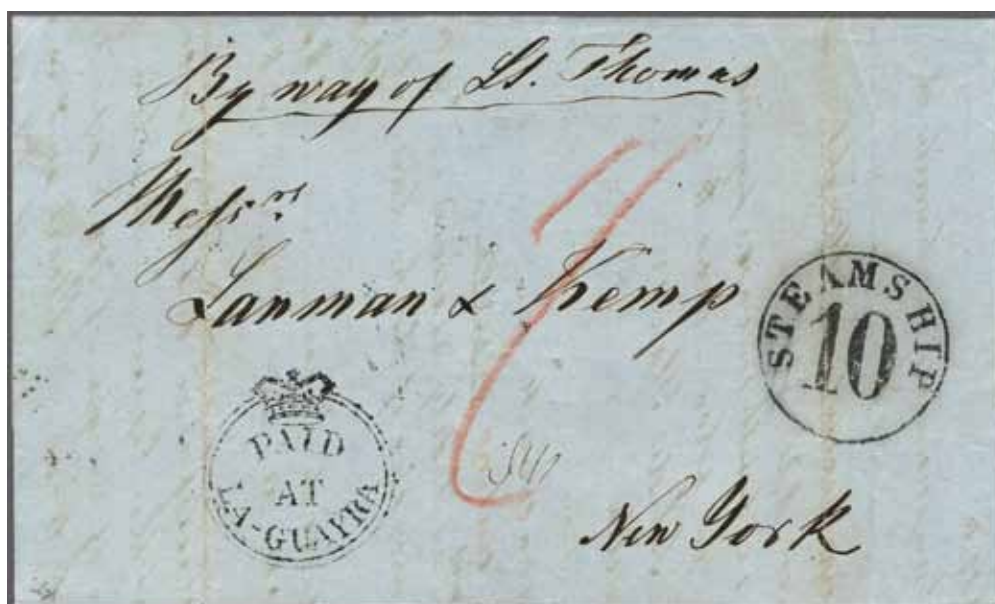 By way of St. Thomas
Messrs
Lanman & Kemp
STEAMSHIP
10
PAID
AT
LA-GUAYRA
New York